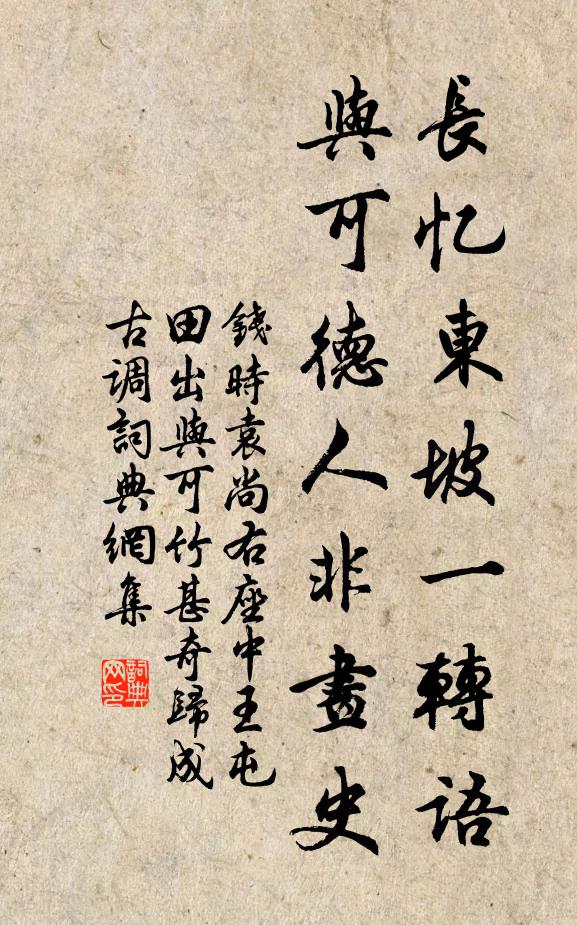 長忆東坡一轉語
與可德人非畫史
錢時袁尚右座中王屯
田出與可竹甚奇歸成
古调詞典網集
詞典
网印